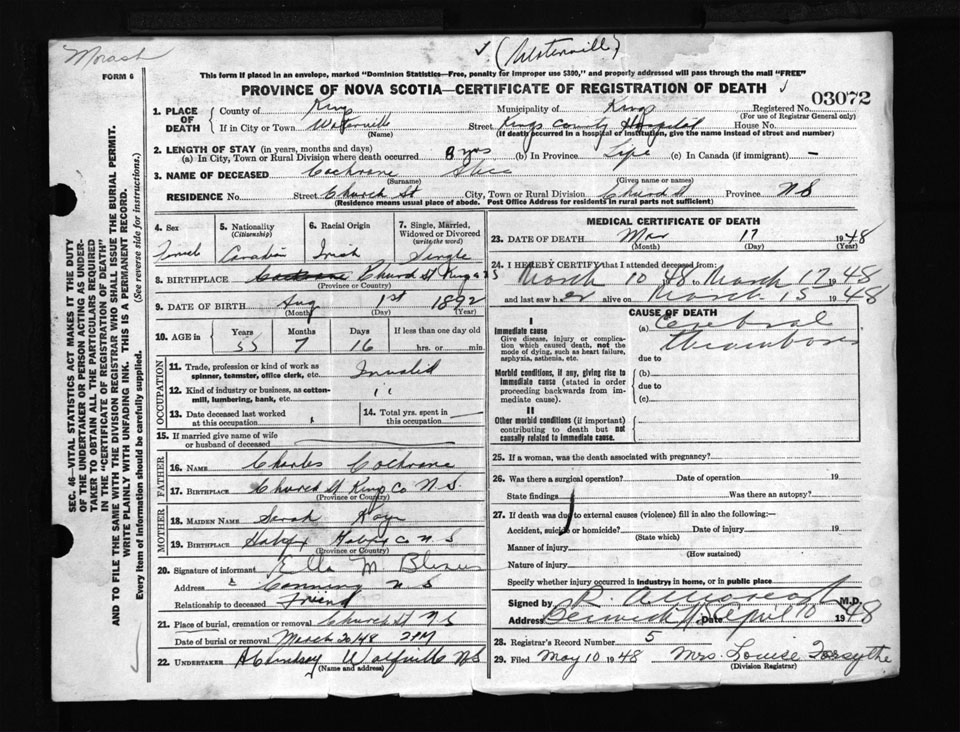 Morash
✓ (Waterville)
FORM 6
This form if placed in an envelope, marked "Dominion Statistics—Free, penalty for improper use $300," and properly addressed will pass through the mail "FREE"
PROVINCE OF NOVA SCOTIA—CERTIFICATE OF REGISTRATION OF DEATH
03072
1. PLACE OF DEATH
County of Kings Municipality of Kings Registered No.
(For use of Registrar General only)
If in City or Town Waterville Street Kings County Hospital House No.
(Name) (If death occurred in a hospital or institution, give the name instead of street and number)
2. LENGTH OF STAY (in years, months and days)
(a) In City, Town or Rural Division where death occurred 8 yrs (b) In Province Life (c) In Canada (if immigrant) —
3. NAME OF DECEASED Cochrane Alice
(Surname) (Given name or names)
RESIDENCE No. Street Church St City, Town or Rural Division Church St Province N S
(Residence means usual place of abode. Post Office Address for residents in rural parts not sufficient)
4. Sex
Female
5. Nationality
(Citizenship)
Canadian
6. Racial Origin
Irish
7. Single, Married, Widowed or Divorced
(write the word)
Single
8. BIRTHPLACE Church St Kings N S
(Province or Country)
9. DATE OF BIRTH Aug 1st 1892
(Month) (Day) (Year)
10. AGE in
Years Months Days If less than one day old
55 7 16 hrs. or min.
OCCUPATION
11. Trade, profession or kind of work as spinner, teamster, office clerk, etc. Invalid
12. Kind of industry or business, as cotton-mill, lumbering, bank, etc. "
13. Date deceased last worked at this occupation
14. Total yrs. spent in this occupation —
15. If married give name of wife or husband of deceased
FATHER
16. NAME Charles Cochrane
17. BIRTHPLACE Church St Kings Co N.S.
(Province or Country)
MOTHER
18. MAIDEN NAME Sarah Kaye
19. BIRTHPLACE Halifx Halifx Co N S
(Province or Country)
20. Signature of informant Ella M.
Address Canning N S
Relationship to deceased Friend
21. Place of burial, cremation or removal Church St N S
Date of burial or removal March 20/48 2 PM
22. UNDERTAKER Wolfville N S
(Name and address)
MEDICAL CERTIFICATE OF DEATH
23. DATE OF DEATH Mar 17 1948
(Month) (Day) (Year)
24. I HEREBY CERTIFY that I attended deceased from:
March 10 1948 to March 17 1948
and last saw her alive on March 15 1948
CAUSE OF DEATH
I
Immediate cause
Give disease, injury or complication which caused death, not the mode of dying, such as heart failure, asphyxia, asthenia, etc.
(a) Cerebral
thrombosis
due to
Morbid conditions, if any, giving rise to immediate cause (stated in order proceeding backwards from immediate cause).
(b)
due to
(c)
II
Other morbid conditions (if important) contributing to death but not causally related to immediate cause.
25. If a woman, was the death associated with pregnancy?
26. Was there a surgical operation? Date of operation 19
State findings Was there an autopsy?
27. If death was due to external causes (violence) fill in also the following:—
Accident, suicide or homicide? Date of injury 19
(State which)
Manner of injury
(How sustained)
Nature of injury
Specify whether injury occurred in industry; in home, or in public place
Signed by M.D.
Address Berwick N.S. Date April 10 1948
28. Registrar's Record Number 5
29. Filed May 10 1948 Mrs. Louise Forsythe
(Division Registrar)
SEC. 46—VITAL STATISTICS ACT MAKES IT THE DUTY
OF THE UNDERTAKER OR PERSON ACTING AS UNDERTAKER
TO OBTAIN ALL THE PARTICULARS REQUIRED
IN THE "CERTIFICATE OF REGISTRATION OF DEATH"
AND TO FILE THE SAME WITH THE DIVISION REGISTRAR WHO SHALL ISSUE THE BURIAL PERMIT.
WRITE PLAINLY WITH UNFADING INK. THIS IS A PERMANENT RECORD.
Every item of information should be carefully supplied. (See reverse side for instructions.)